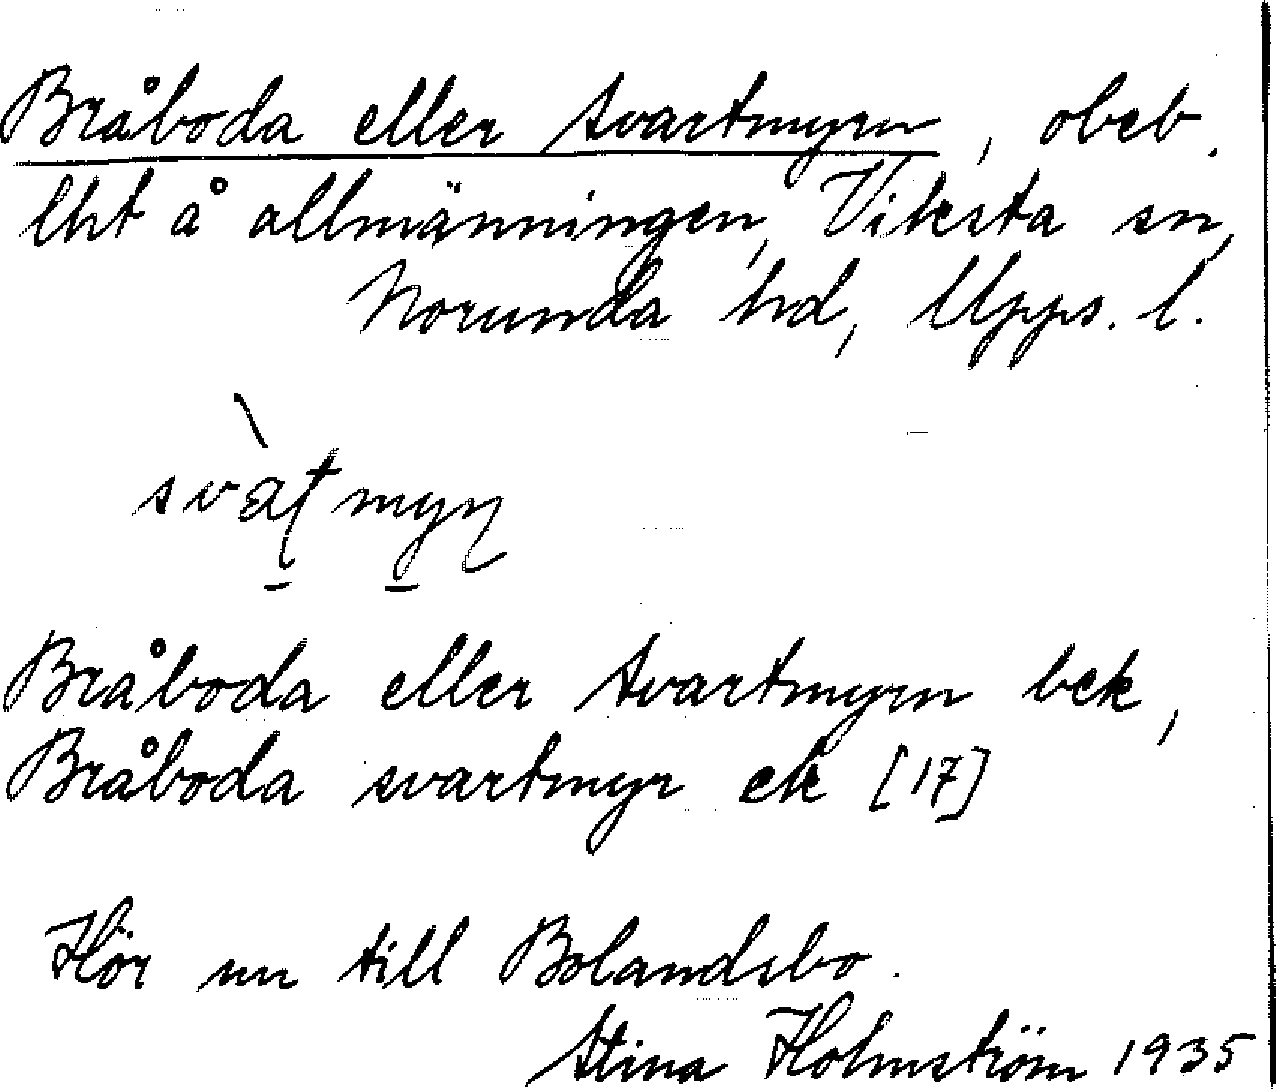 Bråboda eller Svartmyrn, obeb.
lht å allmänningen, Viksta sn,
Norunda hd, Upps. l.
Bråboda eller Svartmyrn bek,
Bråboda svartmyr ek [17]
Hör nu till Bolandsbo.
Stina Holmström 1935